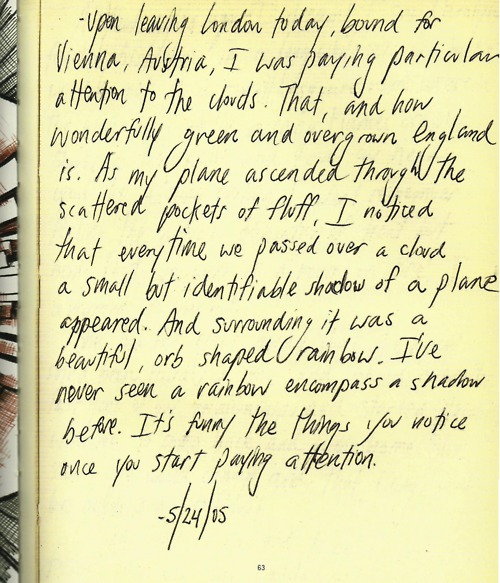 -Upon leaving London today, bound for
Vienna, Austria, I was paying particular
attention to the clouds. That, and how
wonderfully green and overgrown England
is. As my plane ascended through the
scattered pockets of fluff, I noticed
that everytime we passed over a cloud
a small but identifiable shadow of a plane
appeared. And surrounding it was a
beautiful, orb shaped rainbow. I've
never seen a rainbow encompass a shadow
before. It's funny the things you notice
once you start paying attention.
-5/24/05
63